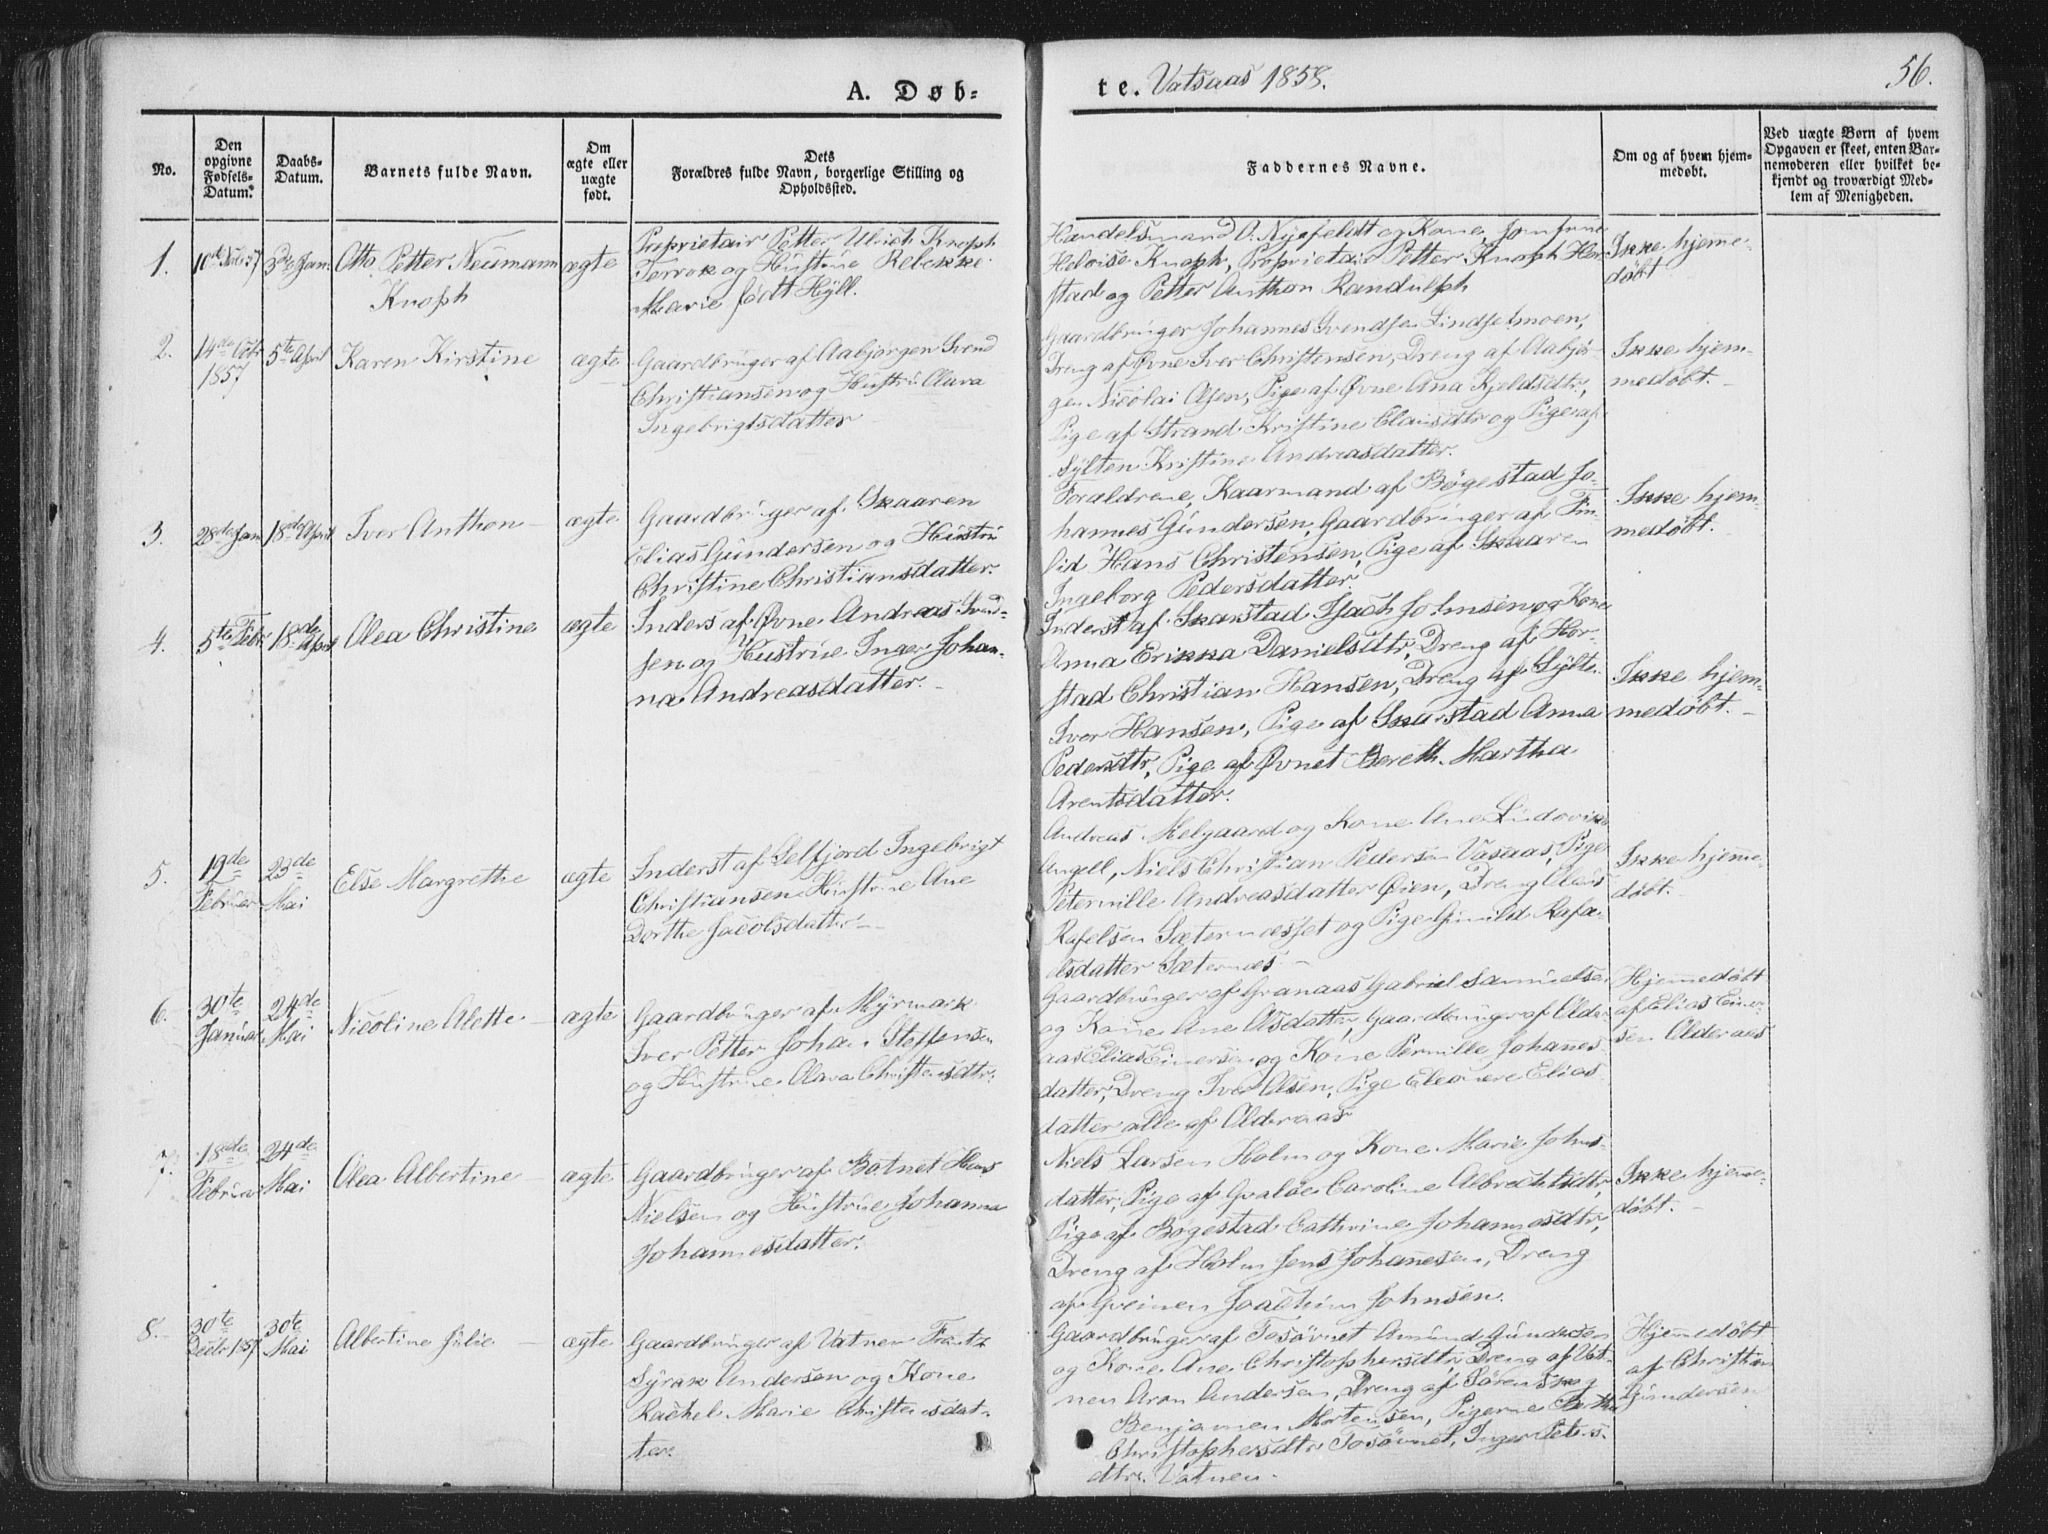 A. Døb-
te. Vatsaas 1858.
56.
No.
Den
opgivne
Fødsels-
Datum.
Daabs-
Datum.
Barnets fulde Navn.
Om
ægte eller
uægte
født.
Dets
Forældres fulde Navn, borgerlige Stilling og
Opholdsted.
Faddernes Navne.
Om og af hvem hjem-
medøbt.
Ved uægte Børn af hvem
Opgaven er skeet, enten Bar-
nemoderen eller hvilket be-
kjendt og troværdigt Med-
lem af Menigheden.
1.
3de Jan
Otto Petter Neumann
Knoph
ægte
Proprietair Petter Ulrich Knoph
Terrok og Hustrue Rebekke
Marie født Hyll.
Handelsmand O. Nyefeldt og Kone, Jomfrue
Heloise Knoph, Proprietair Petter Knoph Hor
stad og Petter Anthon Randulph
Ikke hjeme-
døbt
2.
14de Octr
1857
5te April
Karen Kirstine
ægte
Gaardbruger af Aabjørgen Svend
Christiansen og Hustru Olava
Ingebrigtsdatter
Gaardbruger Johannes Svendsen Lindsetmoen,
Dreng af Øvne Iver Christensen, Dreng af Aabjør-
gen Nicolai Olsen, Pige af Øvne Ana Kjeldsdtr,
Pige af Strand Kristine Claisdtr og Pige af
Sylten Kristine Andreasdatter.
Ikke hjem-
medøbt.
3.
28de Jan
18de April
Iver Anthon
ægte
Gaardbruger af Skaaren
Elias Gundersen og Hustru
Christine Christiansdatter.
Foraldrene, Kaarmand af Bøgestad Jo-
hannes Gundersen, Gaardbruger af Fin
lid Hans Christensen, Pige af Skaaren
Ingeborg Pedersdatter.
Ikke hjem-
medøbt.
4.
5te Febr
18de April
Olea Christine
ægte
Inders af Øvne Andreas Svend-
sen og Hustrue Inger Johan-
na Andreasdatter.
Inderst af Skarstad Isach Johnsen og Kone
Anna Erikka Danielsdtr, Dreng af Hor-
stad Christian Hansen, Dreng af Sylte.
Iver Hansen, Pige af Skarstad Anna
Pedersdtr, Pige af Øvnet Bereth Martha
Arentsdatter.
Ikke hjem-
medøbt.
5.
19de
Februar
23de
Mai
Else Margrethe
ægte
Inderst af Selfjord Ingebrigt
Christiansen Hustrue Ane
Dorthe Jacobsdatter
Andreas Melgaard og Kone Ane Ludovika
Angell, Niels Christian Pedersen Vasaas, Pige
Peternille Andreasdatter Øien, Dreng Claus
Rafelsen Sæternæsset og Pige Gunild Rafa-
elsdatter Sæternæs.
Ikke hjeme-
døbt.
6.
30te
Januar
24de
Mai
Nicoline Alette
ægte
Gaardbruger af Myrmark
Iver Petter Johan Steffensen
og Hustrue Olava Christensdtr.
Gaardbruger af Granaas Gabriel Samuelsen
og Kone Ane Olsdatter, Gaardbruger af Older
aas Elias Einersen og Kone Pernille Johanes-
datter, Dreng Iver Olsen, Pige Eleonere Elias-
datter alle af Olderaas
Hjemedøbt
af Elias Einer-
sen Olderaas
7.
18de
Februar
24de
Mai
Olea Albertine
ægte
Gaardbruger af Botnet Hans
Nielsen og Hustrue Johanna
Johannesdatter.
Niels Larsen Holm og Kone Marie Johns-
datter, Pige af Qvaløe Caroline Albrechtsdtr,
Pige af Bøgestad Cathrine Johannesdtr,
Dreng af Holm Jens Johanesen, Dreng
af Joachim Johnsen.
Ikke hjeme-
døbt.
8.
30te
Decbr 1857
30te
Mai
Albertine Julie
ægte
Gaardbruger af Vatnen Frantz
Syrak Andersen og Kone
Rachel Marie Christensdat-
ter.
Gaardbruger af Tosøvnet Amund Gundersen
og Kone Ane Christophersdtr, Dreng af Vat-
nen Aron Andersen, Dreng af
Benjamen Mortensen, Pigerne
Christophersdtr Tosøvnet, Inger Peters-
dtr. Vatnen.
Hjemedøbt
af Christian
Gundersen